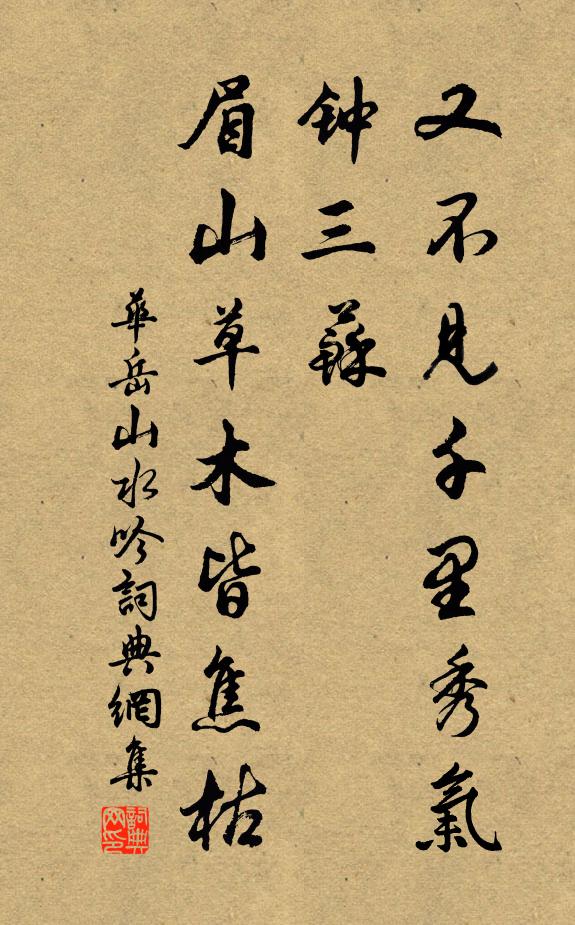 又不見千里秀氣
钟三蘇
眉山草木皆焦枯
華岳山水吟詞典網集
詞典网印